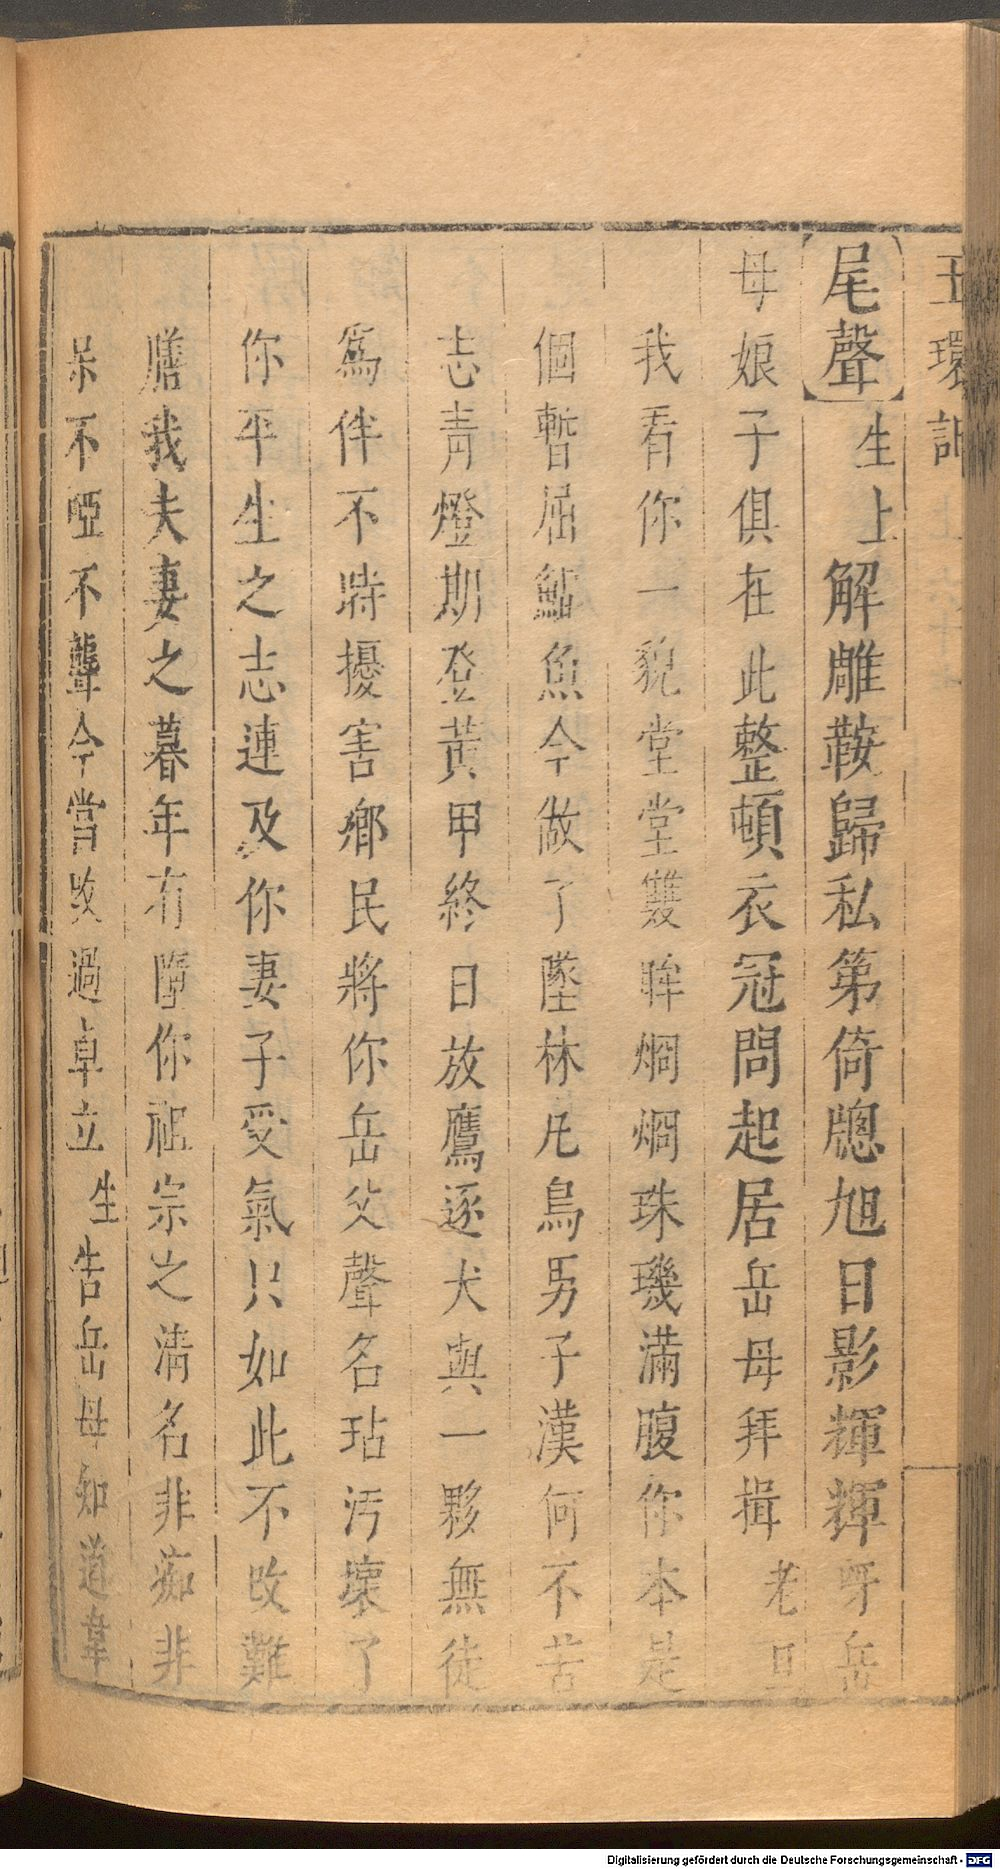 玉環記
尾聲 生上 解雕鞍歸私第倚牕旭日影輝輝呀岳
母娘子俱在此整頓衣冠問起居岳母拜揖 老旦
我看你一貌堂堂雙眸烱烱珠璣滿腹你本是
個暫屈鮎魚今做了墜林凡鳥男子漢何不苦
志青燈期登黃甲終日放鷹逐犬與一夥無徒
爲伴不時擾害鄉民將你岳父聲名玷汚壞了
你平生之志連及你妻子受氣只如此不改難
膳我夫妻之暮年有墮你祖宗之清名非痴非
呆不啞不聾今當改過卓立 生 告岳母知道韋
Digitalisierung gefördert durch die Deutsche Forschungsgemeinschaft - DFG